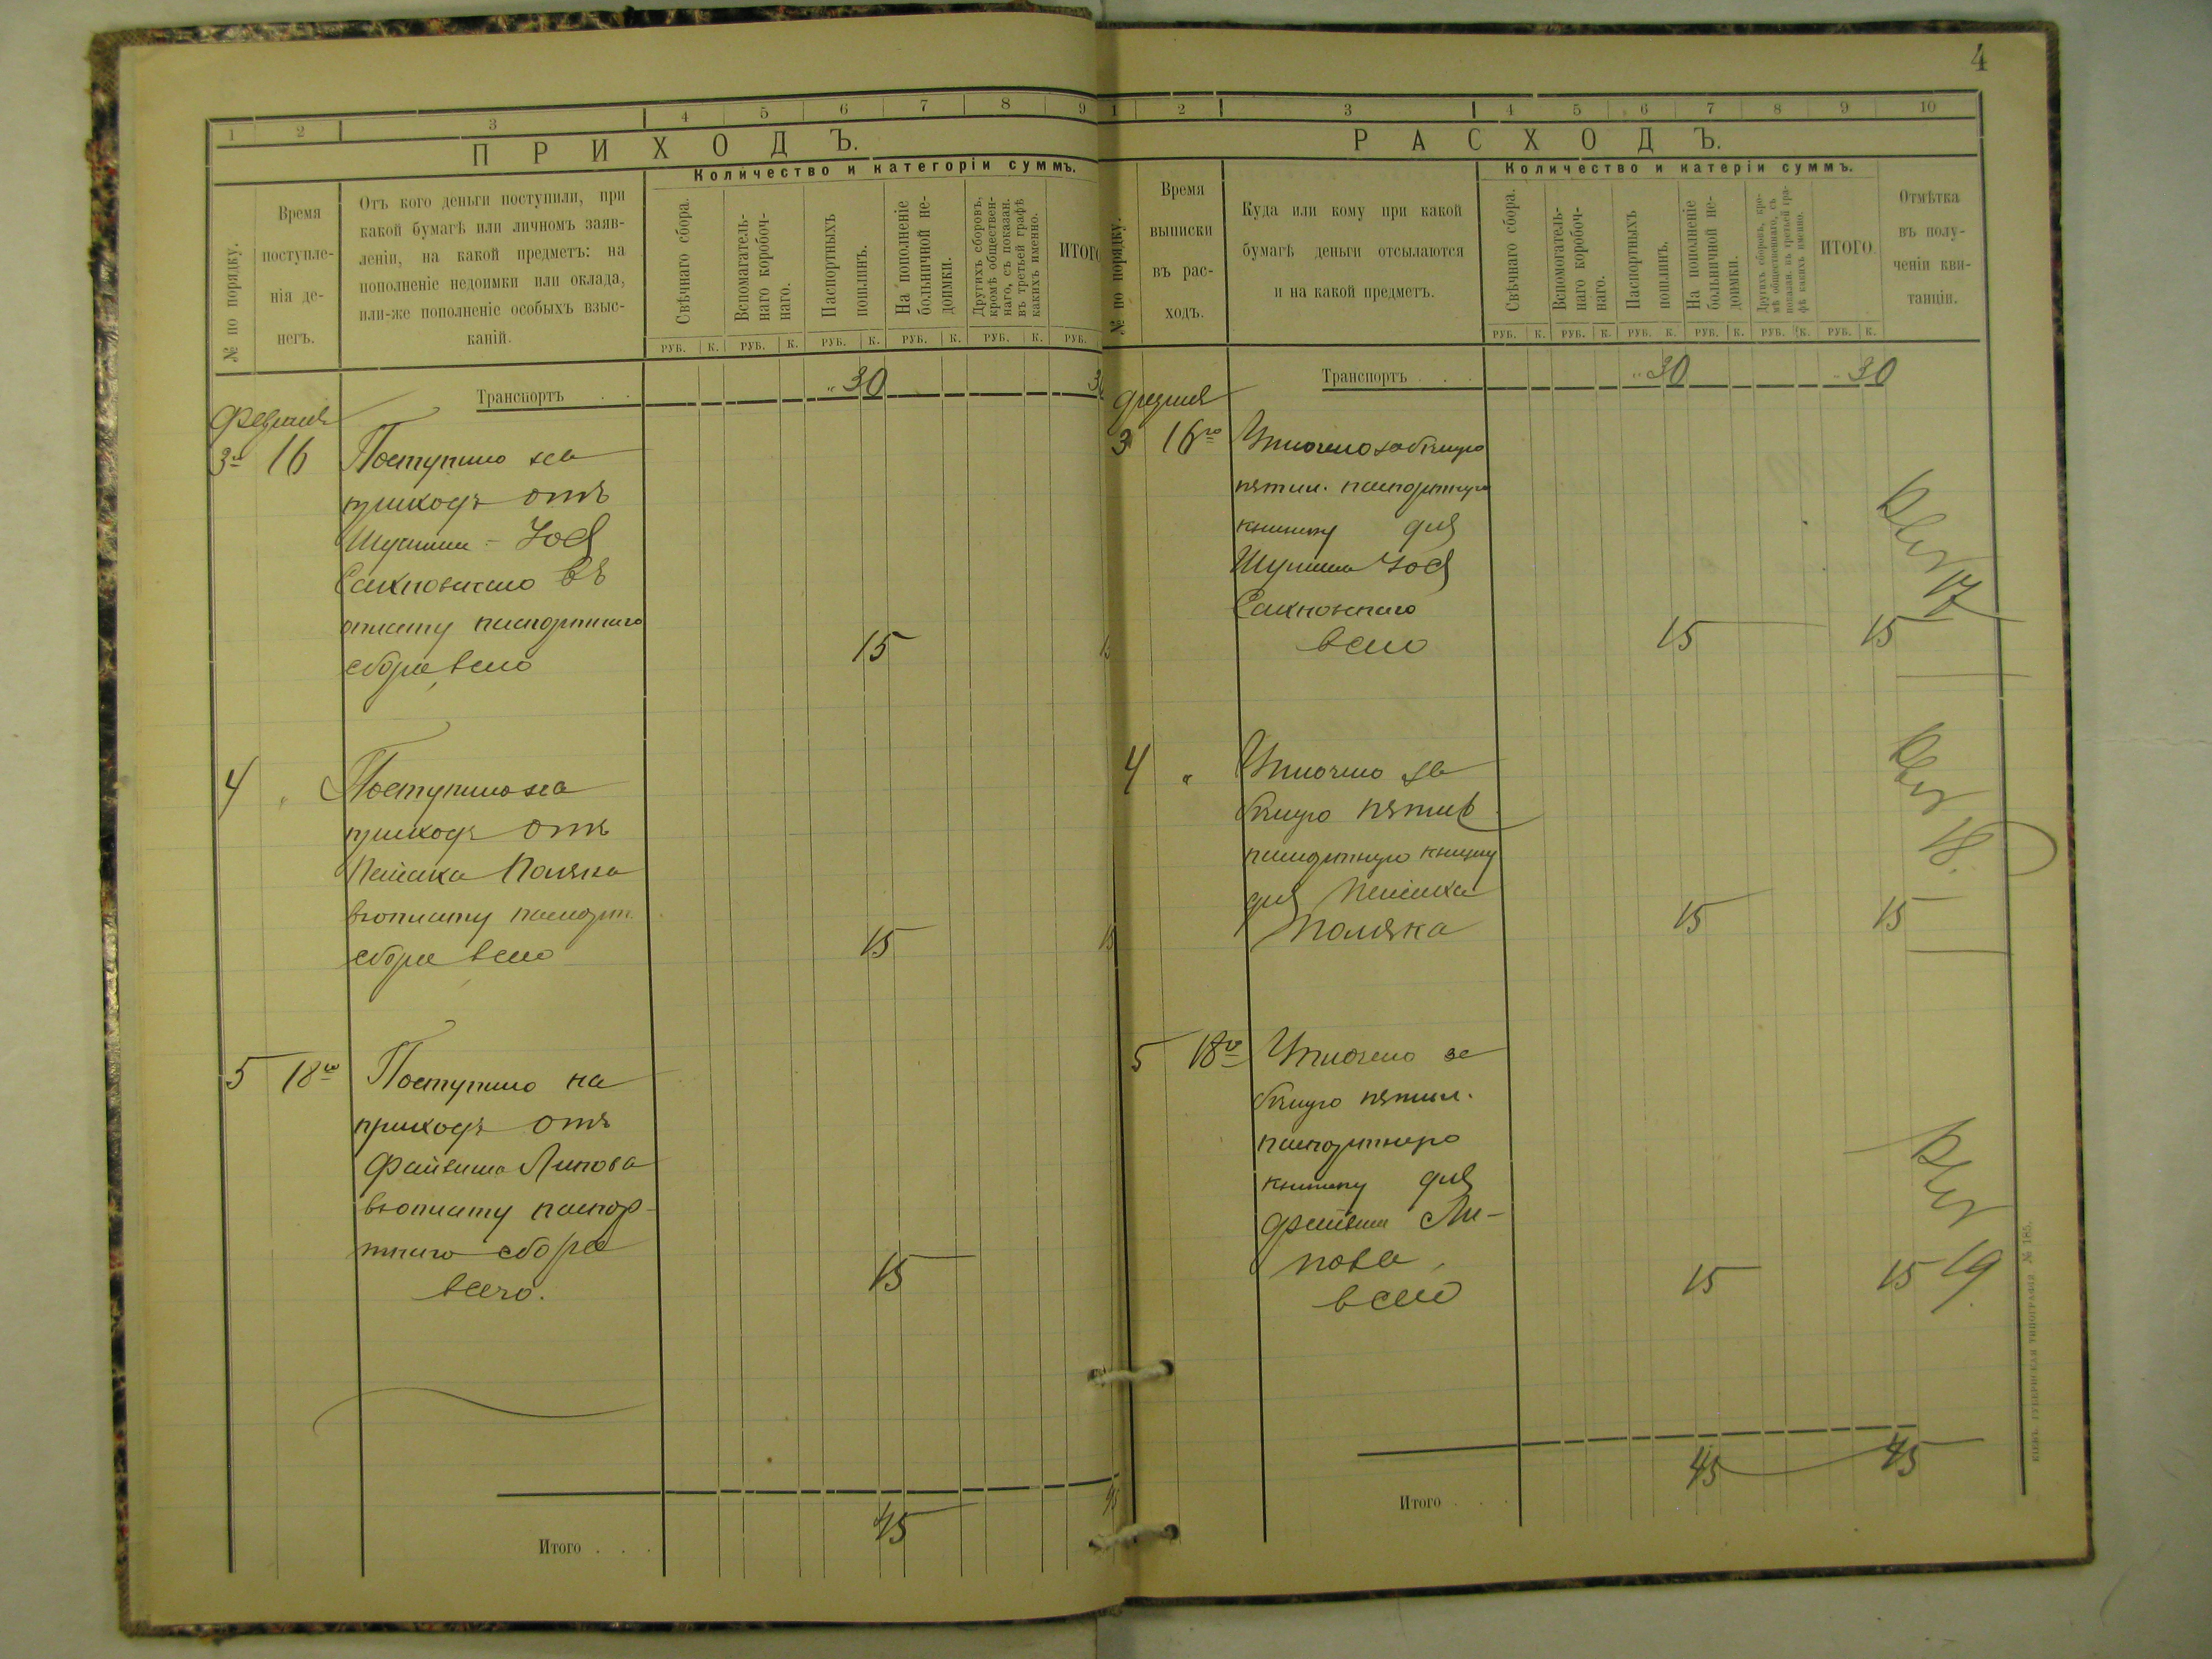 4
1 2 3 4 5 6 7 8 9
ПРИХОДЪ.
Количество и категоріи суммъ.
№ по порядку.
Время
поступле-
нія де-
негъ.
Отъ кого деньги поступили, при
какой бумагѣ или личномъ заяв-
леніи, на какой предметъ: на
пополненіе недоимки или оклада,
или-же пополненіе особыхъ взыс-
каній.
Свѣчнаго сбора.
Вспомагатель-
наго коробоч-
наго.
Паспортныхъ
пошлинъ.
На пополненіе
больничной не-
доимки.
Другихъ сборовъ,
кромѣ обществен-
наго, съ показан.
въ третьей графѣ
какихъ именно.
ИТОГО
РУБ. К. РУБ. К. РУБ. К. РУБ. К. РУБ. К. РУБ.
Транспортъ . . „ 30 30
Февраля
3 16 Поступило на
приходъ отъ
Шулима - Іося
Сахновскаго въ
оплату паспортнаго
сбора, всего 15 15
4 „ Поступило на
приходъ отъ
Пейсаха Поляка
въ оплату паспорт.
сбора всего 15 15
5 18го Поступило на
приходъ отъ
Файвиша Липова
въ оплату паспор-
тнаго сбора
всего. 15
Итого . . . 45 45
1 2 3 4 5 6 7 8 9 10
РАСХОДЪ.
Количество и катерiи суммъ.
№ по порядку.
Время
выписки
въ рас-
ходъ.
Куда или кому при какой
бумагѣ деньги отсылаются
и на какой предметъ.
Свѣчнаго сбора.
Вспомогатель-
наго коробоч-
наго.
Паспортныхъ
пошлинъ.
На пополненіе
больничной не-
доимки.
Другихъ сборовъ, кро-
мѣ общественнаго, съ
показан. въ третьей гра-
фѣ какихъ именно.
ИТОГО.
Отмѣтка
въ полу-
ченіи кви-
танціи.
РУБ. К. РУБ. К. РУБ. К. РУБ. К. РУБ. К. РУБ. К.
Транспортъ . . . „ 30 „ 30
Февраля
3 16го Уплочено за бѣлую
пятил. паспортную
книжку для
Шулима Іося
Сахновскаго
всего 15 15 17
4 „ Уплочено за
бѣлую пятил.
паспортную книжку
для Пейсаха
Поляка 15 15 18.
5 18го Уплочено за
бѣлую пятил.
паспортную
книжку для
Файвиша Ли-
пова,
всего 15 15 19.
Итого . . . 45 45
КІЕВЪ. ГУБЕРНСКАЯ ТИПОГРАФІЯ № 185.